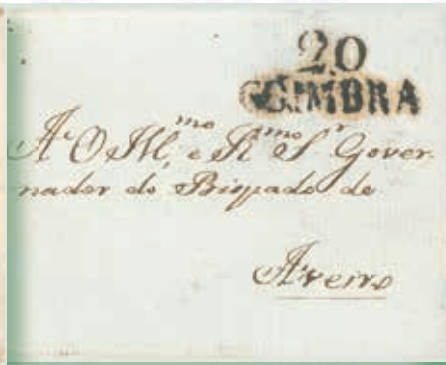 20
COIMBRA
Ao Illmo, e Rmo Sr Gover-
nador do Bispado de
Aveiro